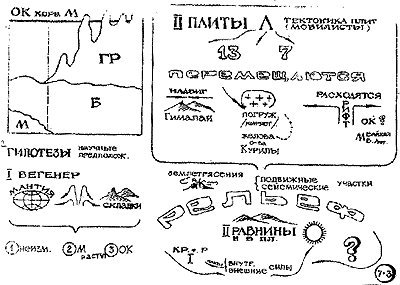 ОК кора М
ГР
Б
М
ГИПОТЕЗЫ научные предполож.
I ВЕГЕНЕР
МАНТИЯ
СКЛАДКИ
1 неизм. 2 М раст 3 ОК
II ПЛИТЫ Л ТЕКТОНИКА ПЛИТ
(МОБИЛИСТЫ)
13 7
ПЕРЕМЕЩАЮТСЯ
НАДВИГ
ГИМАЛАИ
ПОГРУЖ.
ЖЕЛОБА
О-ВА
КУРИЛЫ
РАСХОДЯТСЯ
РИФТ
ОК
М
ЗЕМЛЕТРЯСЕНИЯ
ПОДВИЖНЫЕ
СЕЙСМИЧЕСКИЕ УЧАСТКИ
РЕЛЬЕФ
II РАВНИНЫ
И В ПЛ.
КР. Ф. Р
I
ВНУТР.
ВНЕШНИЕ СИЛЫ
?
7·3